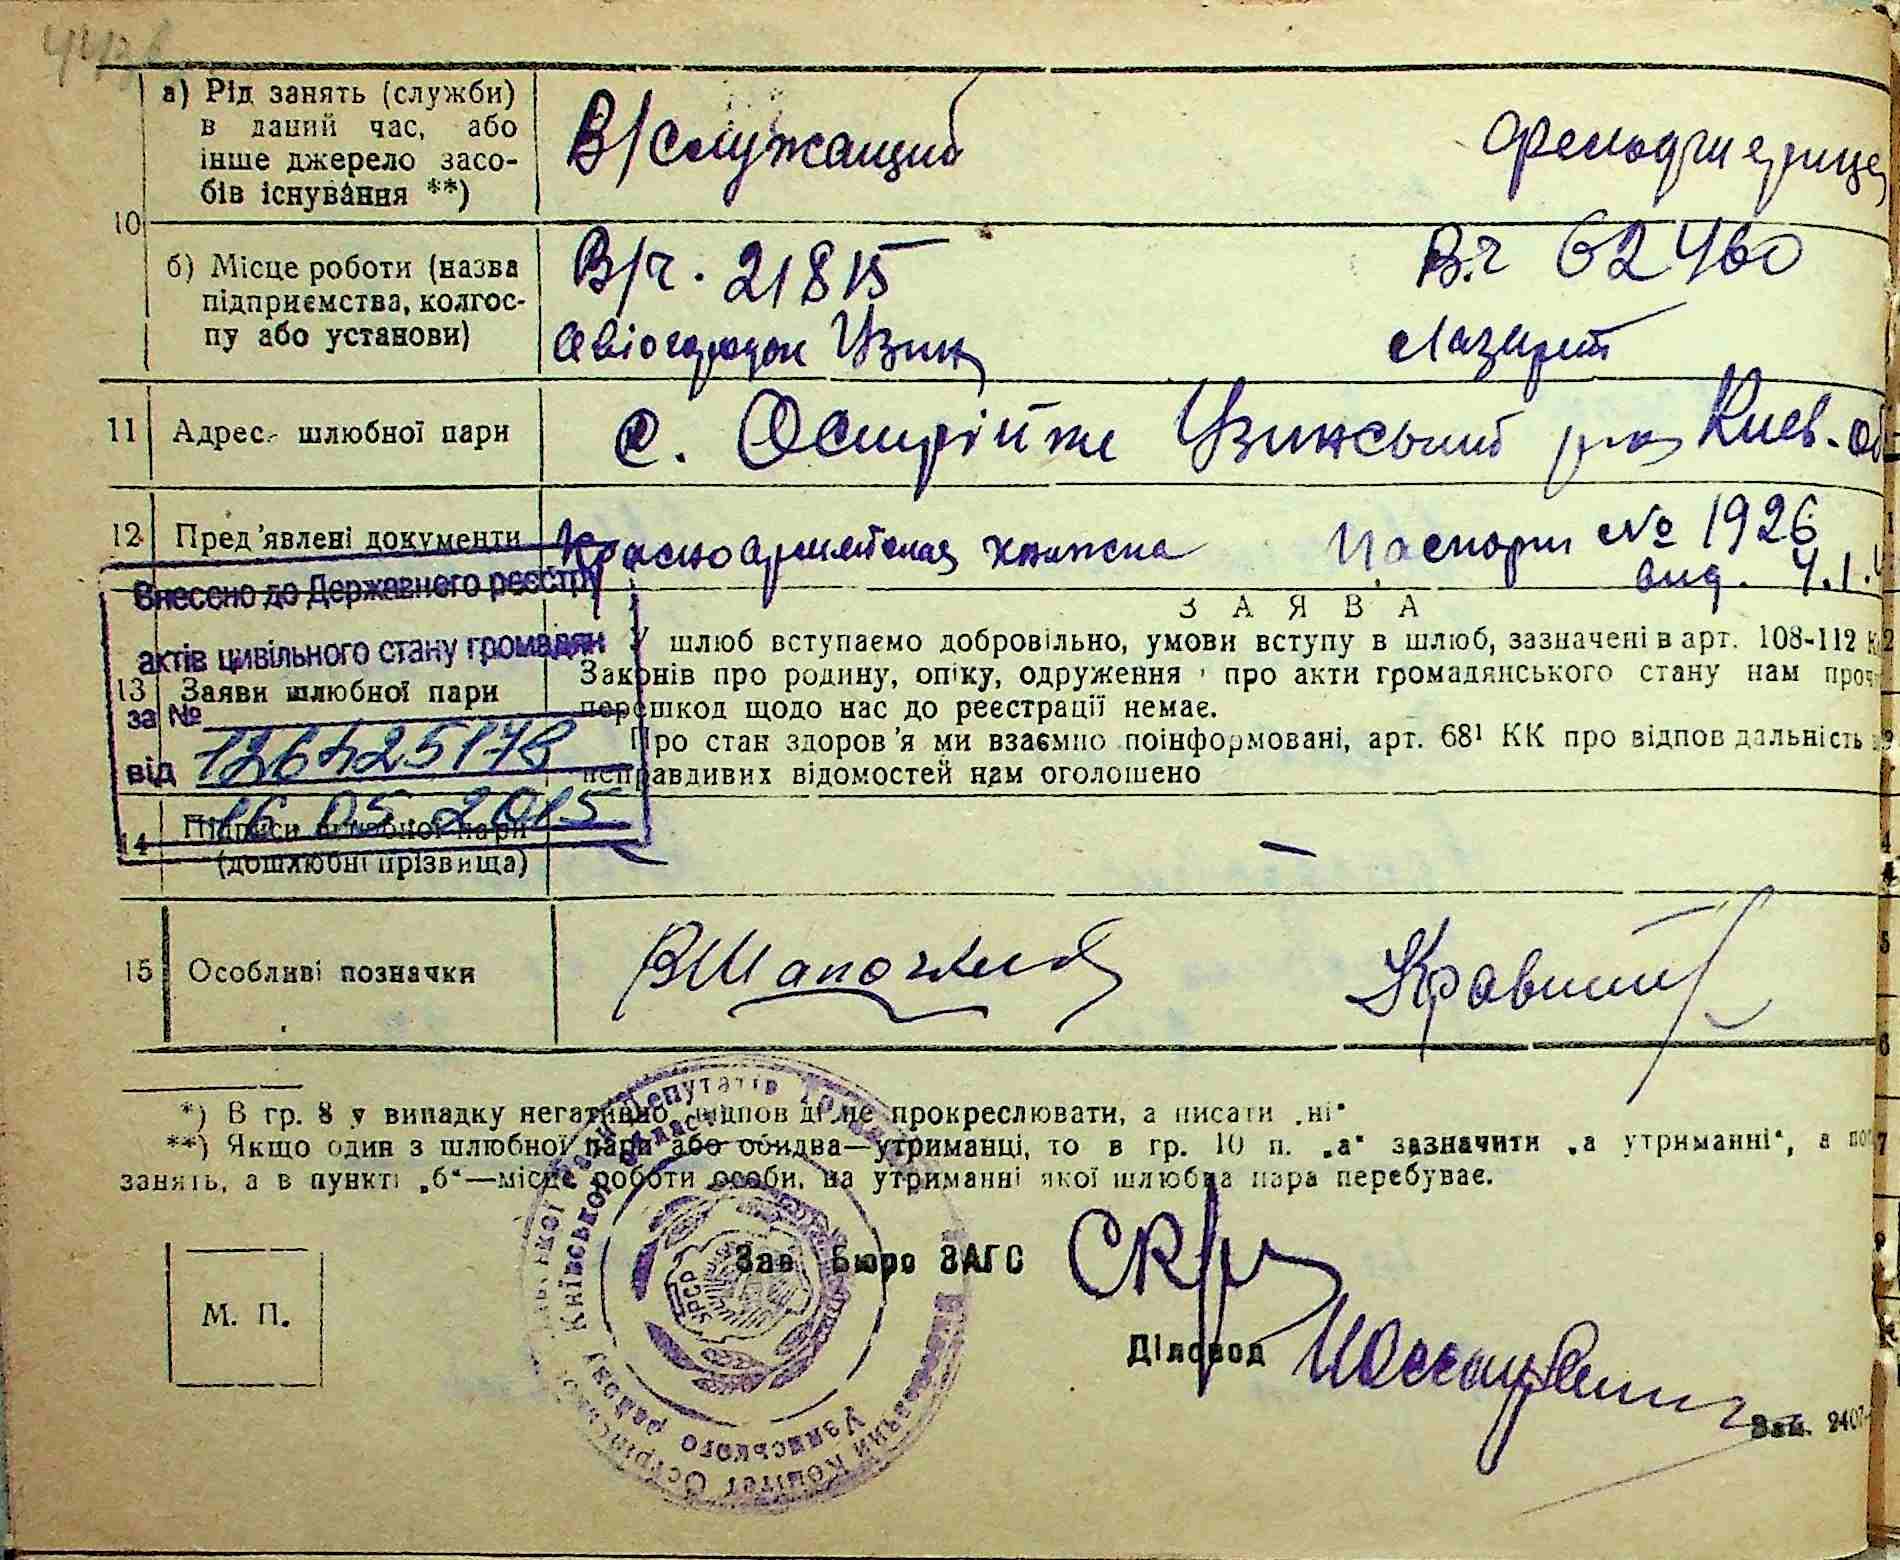 а) Рід занять (служби)
в даний час, або
інше джерело засо-
бів існування **)
В/служащий
10
б) Місце роботи (назва
підприємства, колгос-
пу або установи)
В/ч. 21815
В.ч 62460
Узин
Лазарет
11 Адрес шлюбної пари
с. Острійки Узинський р-на Киев-об
12 Пред'явлені документи
Красноармейская книжка Паспорт № 1926
вид. 4.1.
Внесено до Державного реєстру
актів цивільного стану громадян
за №
від
16.05.2015
ЗАЯВА
13 Заяви шлюбної пари
У шлюб вступаємо добровільно, умови вступу в шлюб, зазначені в арт. 108-112
Законів про родину, опіку, одруження і про акти громадянського стану нам проч
перешкод щодо нас до реєстрації немає.
Про стан здоров'я ми взаємно поінформовані, арт. 68¹ КК про відповідальність
неправдивих відомостей нам оголошено
14 Підписи шлюбної пари
(дошлюбні прізвища)
— —
15 Особливі позначки
*) В гр. 8 у випадку негативно відповіді не прокреслювати, а писати „ні“
**) Якщо один з шлюбної пари або обидва—утриманці, то в гр. 10 п. „а“ зазначити „а утриманні“, а
занять, а в пункті „б“—місце роботи особи, на утриманні якої шлюбна пара перебуває.
М. П.
Зав Бюро ЗАГС
Діловод
Зам. 2407
УРСР
Київської області
Узинського району